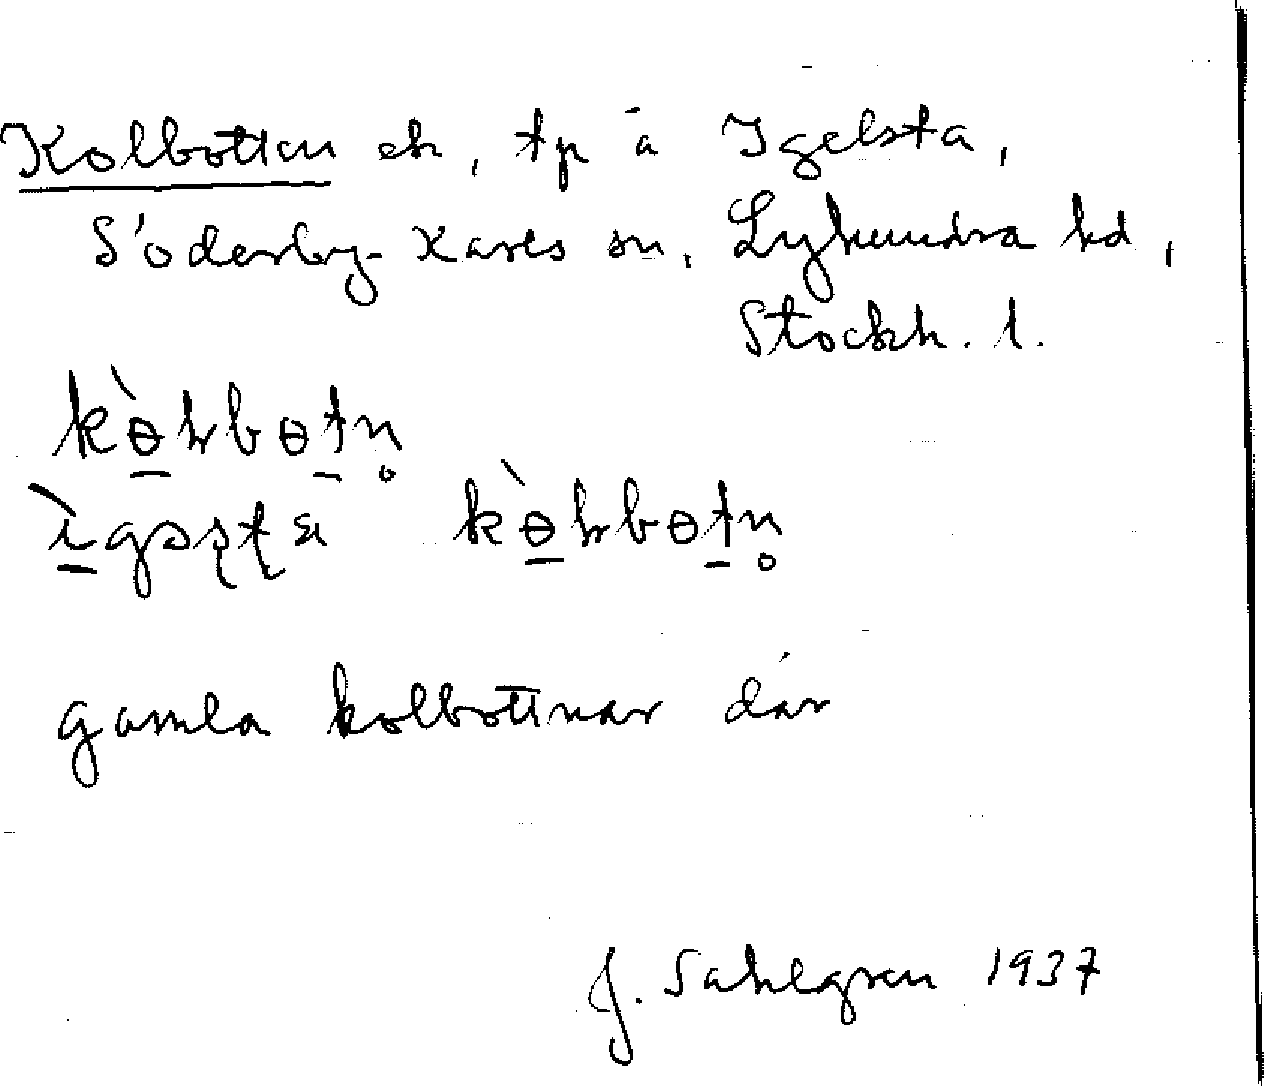 Kolbotten ek, tp å Igelsta,
Söderby-Karls sn, Lyhundra hd,
Stockh. l.
gamla kolbottnar där
J. Sahlgren 1937